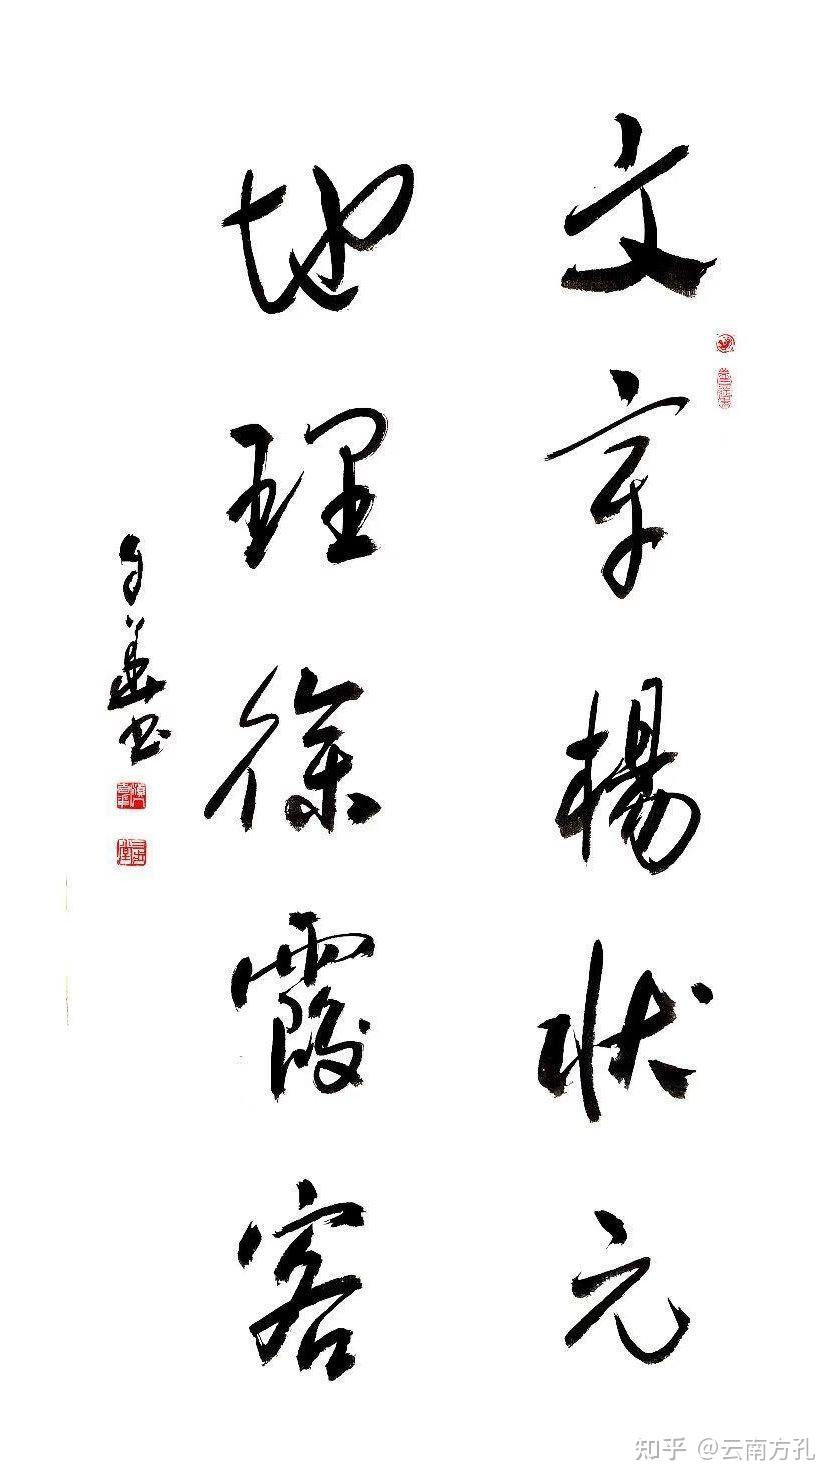 文章楊狀元
地理徐霞客
知乎 @云南方孔